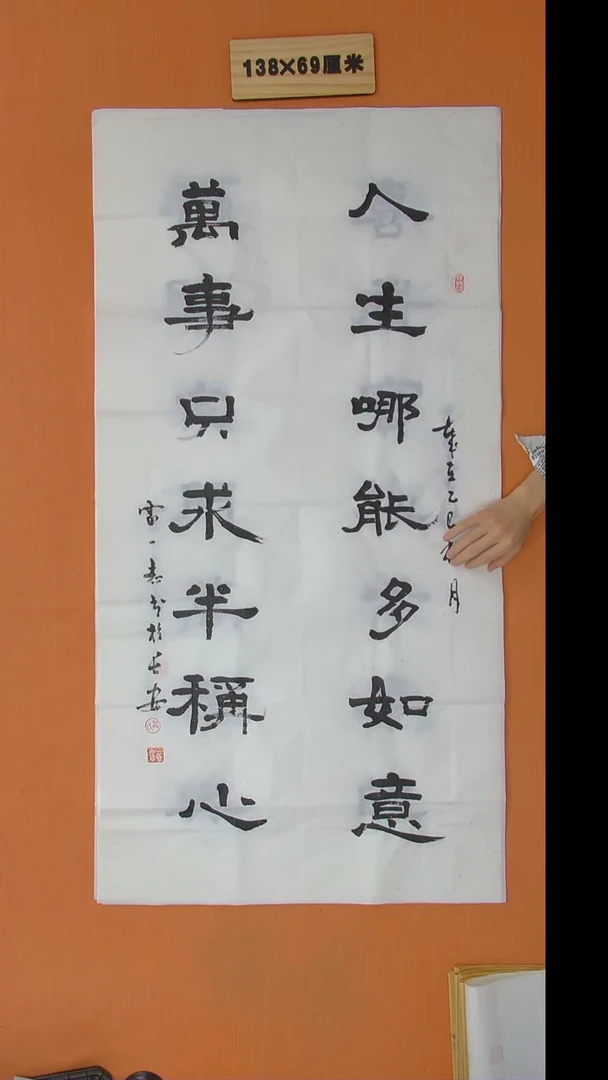 138×69厘米
人生哪能多如意
歲在乙巳月
萬事只求半稱心
雷一春书於长安